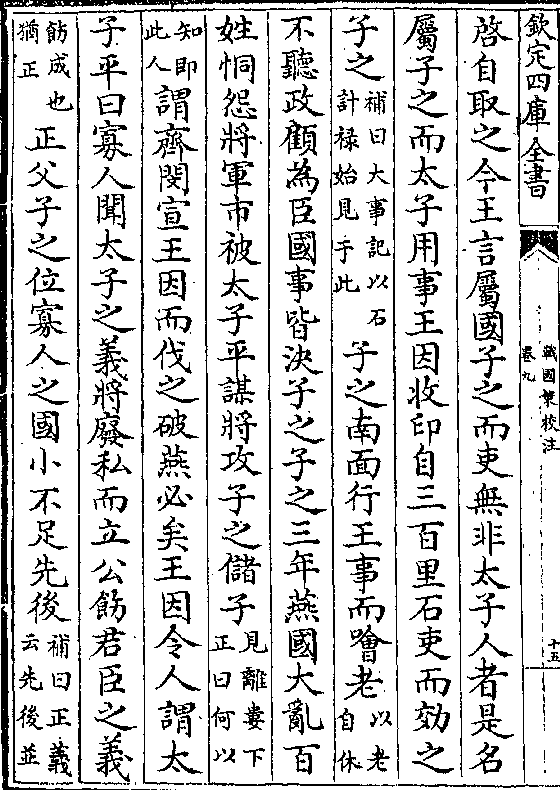 欽定四庫全書
戰國策校注
卷九
十五
啓自取之今王言屬國子之而吏無非太子人者是名
屬子之而太子用事王因收印自三百里石吏而効之
子之補曰大事記以石計禄始見于此子之南面行王事而噲老以老自休
不聽政顧為臣國事皆決子之子之三年燕國大亂百
姓恫怨將軍市被太子平謀將攻子之儲子見離婁下正曰何以
知即此人謂齊閔宣王因而伐之破燕必矣王因令人謂太
子平曰寡人聞太子之義將廢私而立公飭君臣之義
飭成也猶正正父子之位寡人之國小不足先後補曰正義云先後並